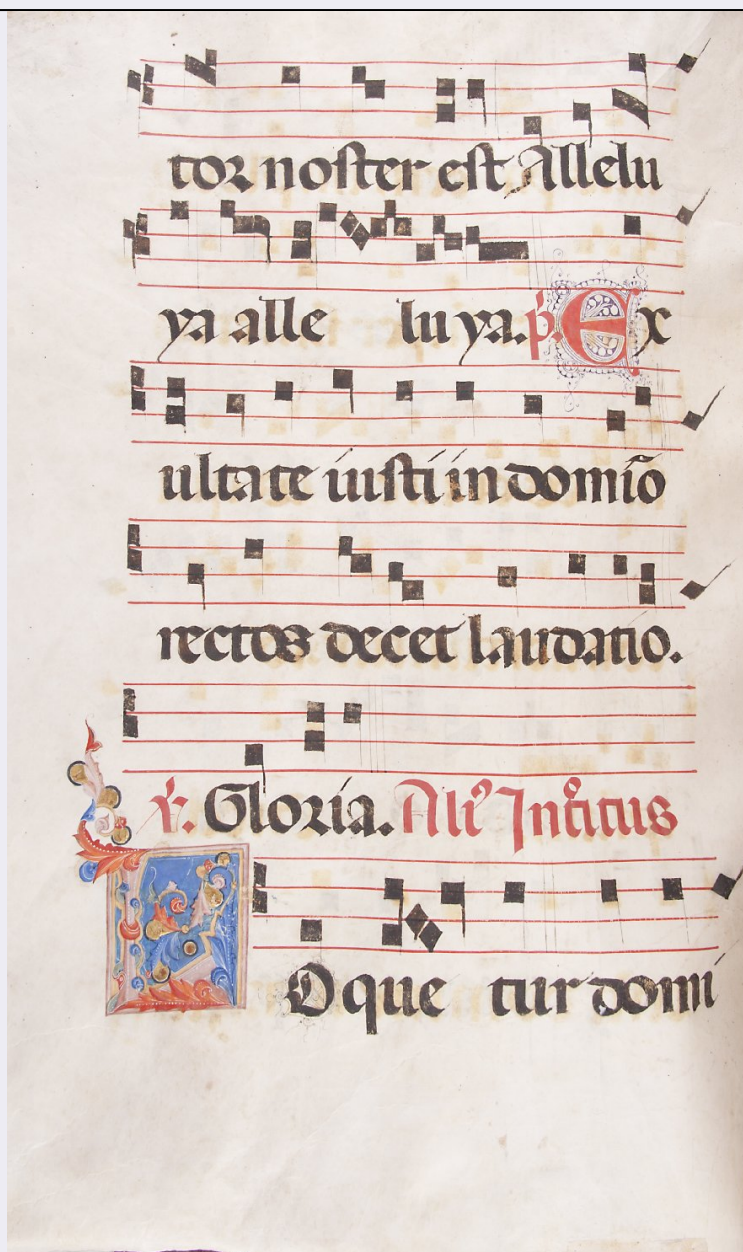 tor noster est Allelu
ya alle lu ya. p̄. Ex
ultate iusti in domīo
rectos decet laudatio.
℣. Gloria. Ali⁹ Int̊itus
Oque tur domi